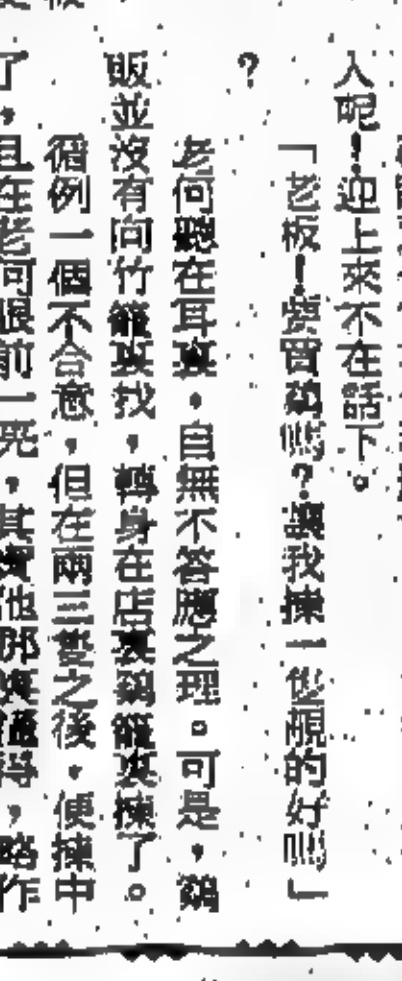 入呢！迎上來不在話下。
「老板！要買鷄嗎？讓我揀一隻靚的好嗎」
？
老何聽在耳裏，自無不答應之理。可是，鷄
販並沒有向竹籠裏找，轉身在店裏鷄籠裏揀了。
循例一個不合意，但在兩三隻之後，便揀中
了，且在老何眼前一亮，其實他那 得，略作